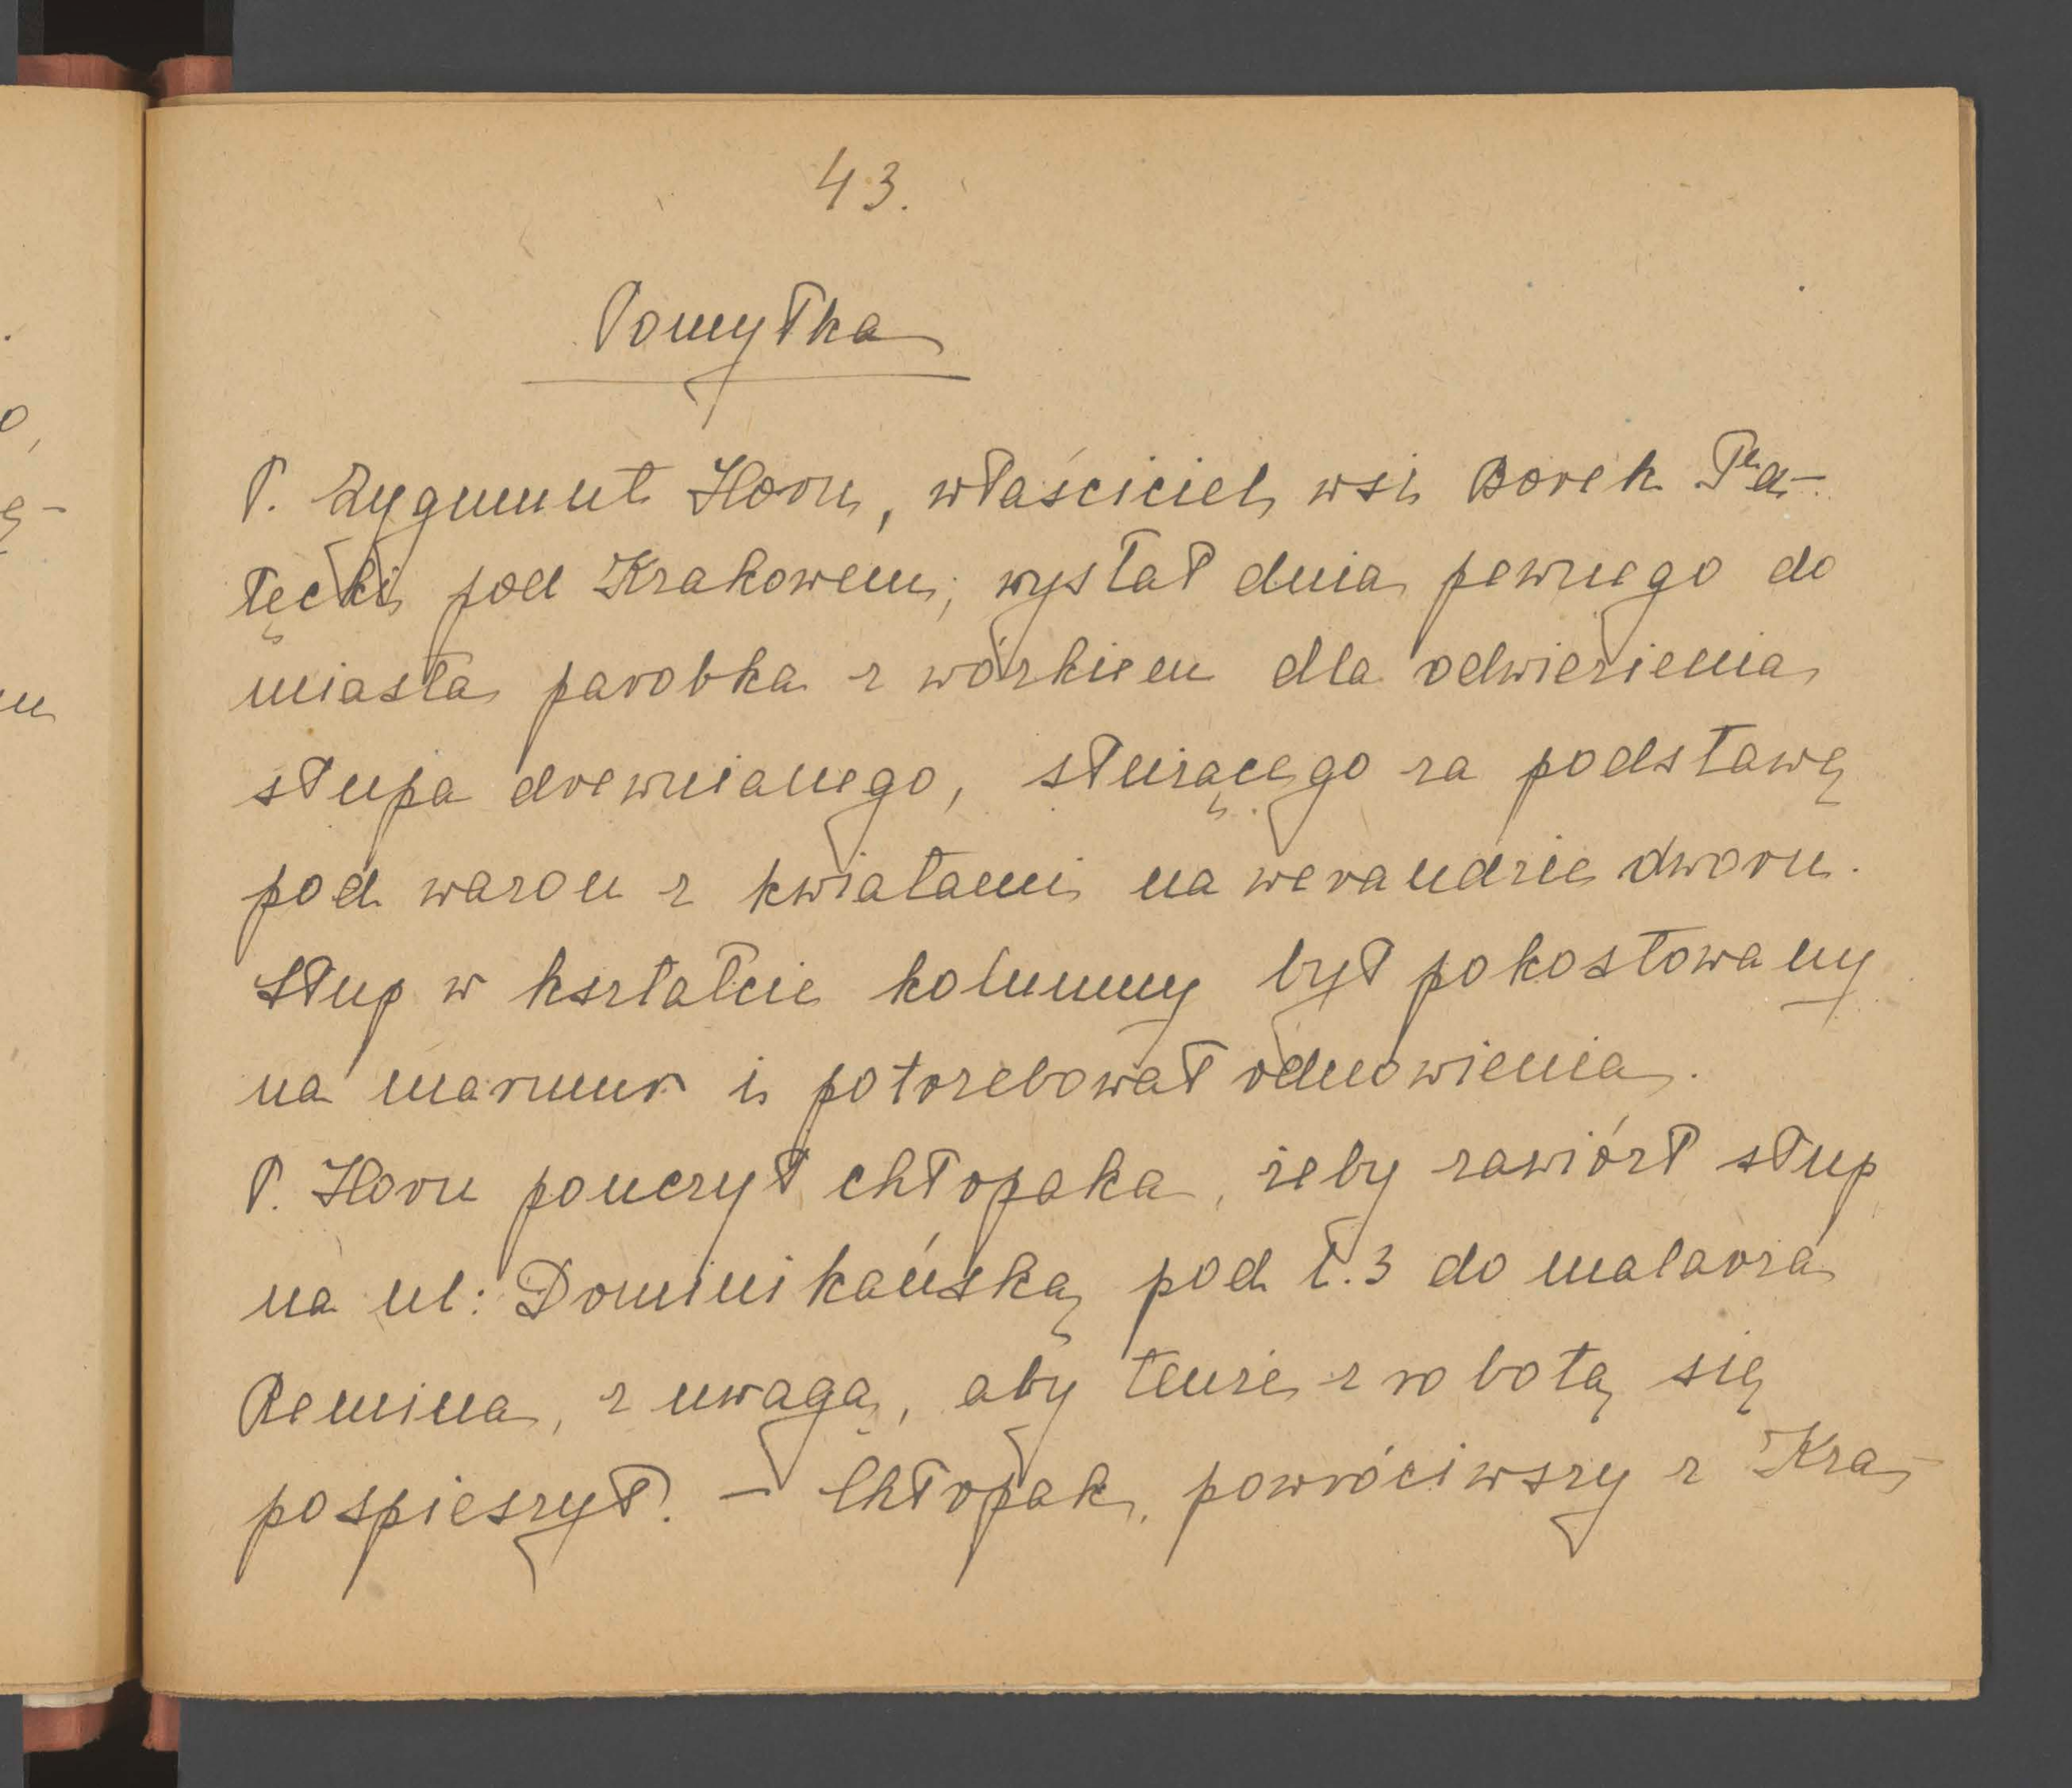 43.
Pomyłka
P. Zygmunt Horn, właściciel wsi Borek Fa-
łęcki pod Krakowem, wysłał dnia pewnego do
miasta parobka z wózkiem dla odwiezienia
słupa drewnianego, służącego za podstawę
pod wazon z kwiatami na werandzie dworu.
Słup w kształcie kolumny był pokostowany
na marmur i potrzebował odnowienia.
P. Horn pouczył chłopaka, żeby zawiózł słup
na ul: Dominikańską pod l. 3 do malarza
Remina, z uwagą, aby tenże z robotą się
pospieszył. – Chłopak, powróciwszy z Kra-